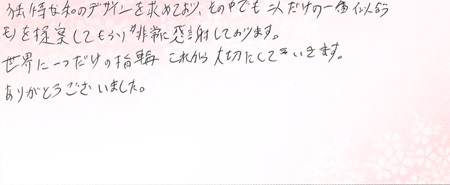 な和のデザインを求めており、その中でも二人だけの一番似合う
モノを提案してもらい非常に感謝しております。
世界に一つだけの指輪 これから大切にしていきます。
ありがとうございました。